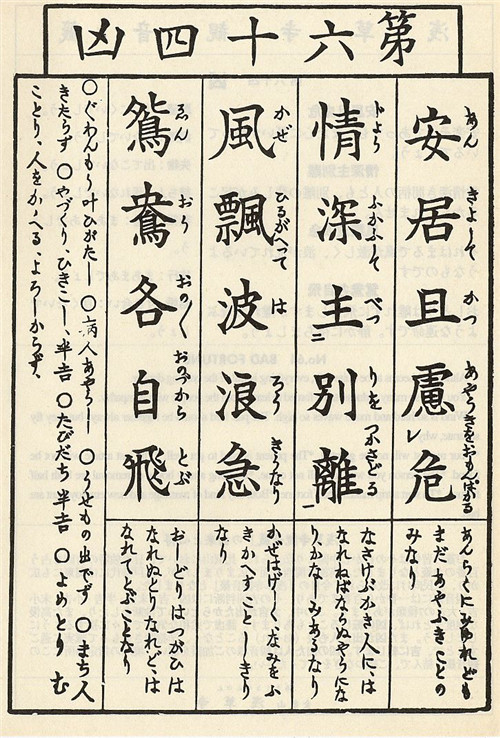 第六十四凶
あん きよして かつ あやうきをおもんぱかる
安居且慮レ危
あんらくにみゆれども
まだあやふきことの
みなり
じよう ふかふして べつ りを つかさどる
情深主二別離一
なさけぶかき人に、は
なれねばならぬやうにな
りかなしみあるなり
かぜ ひるがへつて は ろう きうなり
風飄波浪急
かぜはげしく、なみをふ
きかへすことしきり
なり
ゑん おう おの〳〵 おのづから とぶ
鴛鴦各自飛
おしどりはつがひは
なれぬものなれど、は
なれてとぶことなり
〇ぐわんもう叶ひがたし 〇病人あやうし 〇うせもの出でず 〇まち人
きたらず 〇やづくり、ひきこし、半吉 〇たびだち半吉 〇よめとり む
ことり、人をかゝへる、よろしからず、